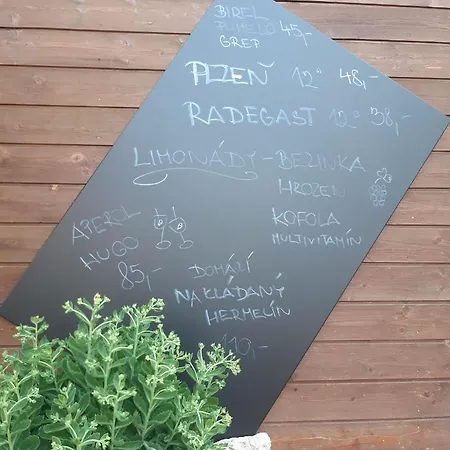 BIREL
PUMELO 45,-
GREP
PLZEŇ 12° 48,-
RADEGAST 12° 38,-
LIMONÁDY - BEZINKA
HROZEN
KOFOLA
MULTIVITAMÍN
APEROL
HUGO
85,-
DOMÁCÍ
NAKLÁDANÝ
HERMELÍN
110,-